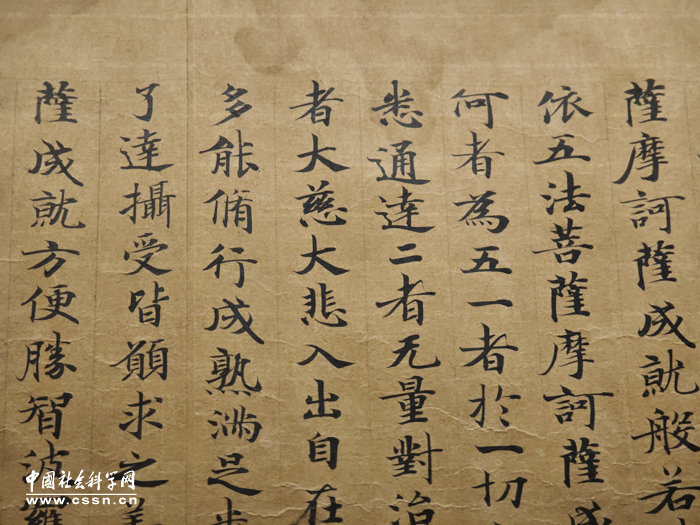 薩摩訶薩成就般若
依五法菩薩摩訶薩成
何者為五一者於一切
悉通達二者无量對治
者大慈大悲入出自在
多能脩行成熟滿足
了達攝受皆願求之善
薩成就方便勝智波羅
中国社会科学网
www.cssn.cn